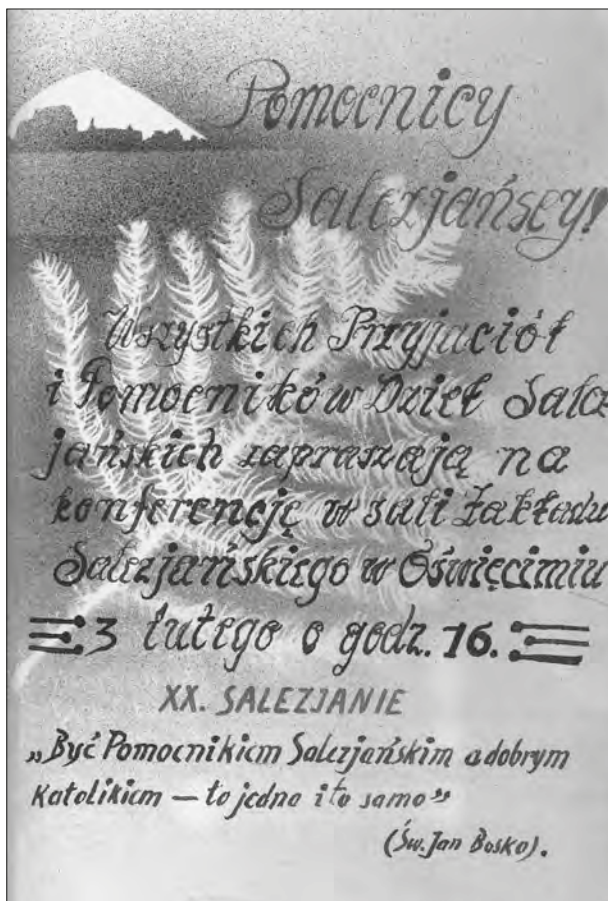 Pomocnicy
Salezjańscy!
Wszystkich Przyjaciół
i Pomocników Dzieł Salez
jańskich zapraszają na
konferencję w sali Zakładu
Salezjańskiego w Oświęcimiu
3 lutego o godz. 16.
XX. SALEZJANIE
„Być Pomocnikiem Salezjańskim a dobrym
Katolikiem — to jedno i to samo”
(Św. Jan Bosko).